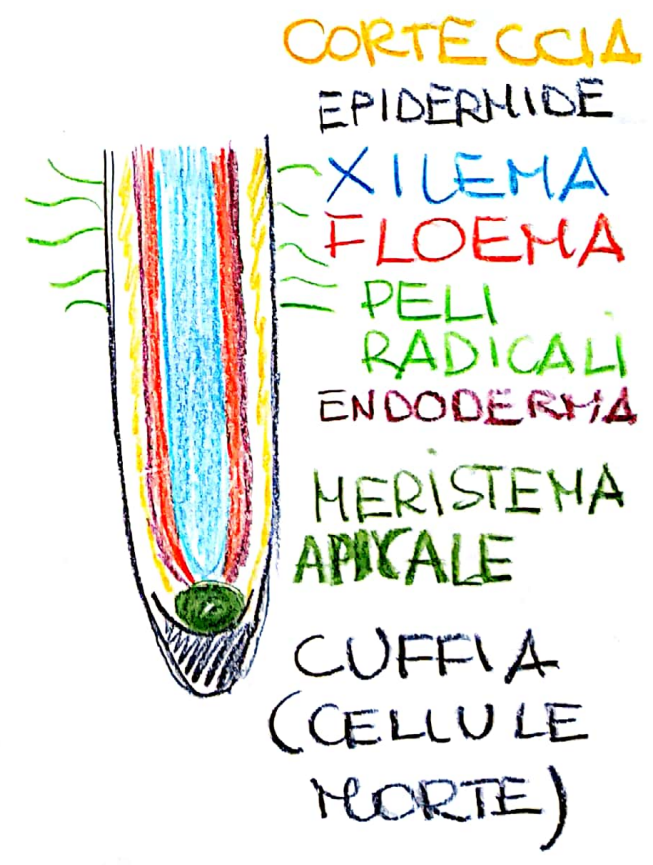 CORTECCIA
EPIDERMIDE
XILEMA
FLOEMA
PELI
RADICALI
ENDODERMA
MERISTEMA
APICALE
CUFFIA
(CELLULE
MORTE)